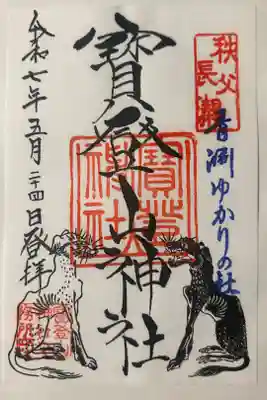 秩父
長瀞
青淵ゆかりの社
寳登山神社
寳登山
神社
令和七年五月二十四日登拝